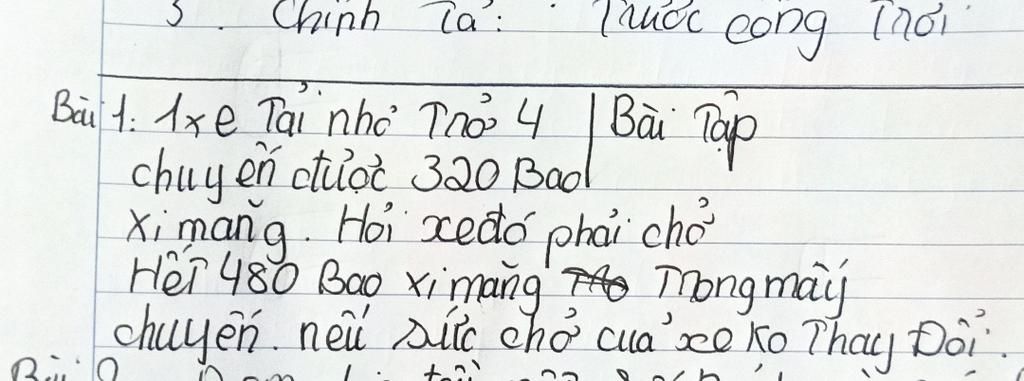 3. Chính Tả: Trước cổng Trời
Bài 1: 1 xe Tải nhỏ Trở 4 | Bài Tập
chuyến được 320 Bao
Xi măng. Hỏi xe đó phải chở
Hết 480 Bao xi măng Trong mấy
chuyến. nếu sức chở của xe Ko Thay Đổi.
Bài 2